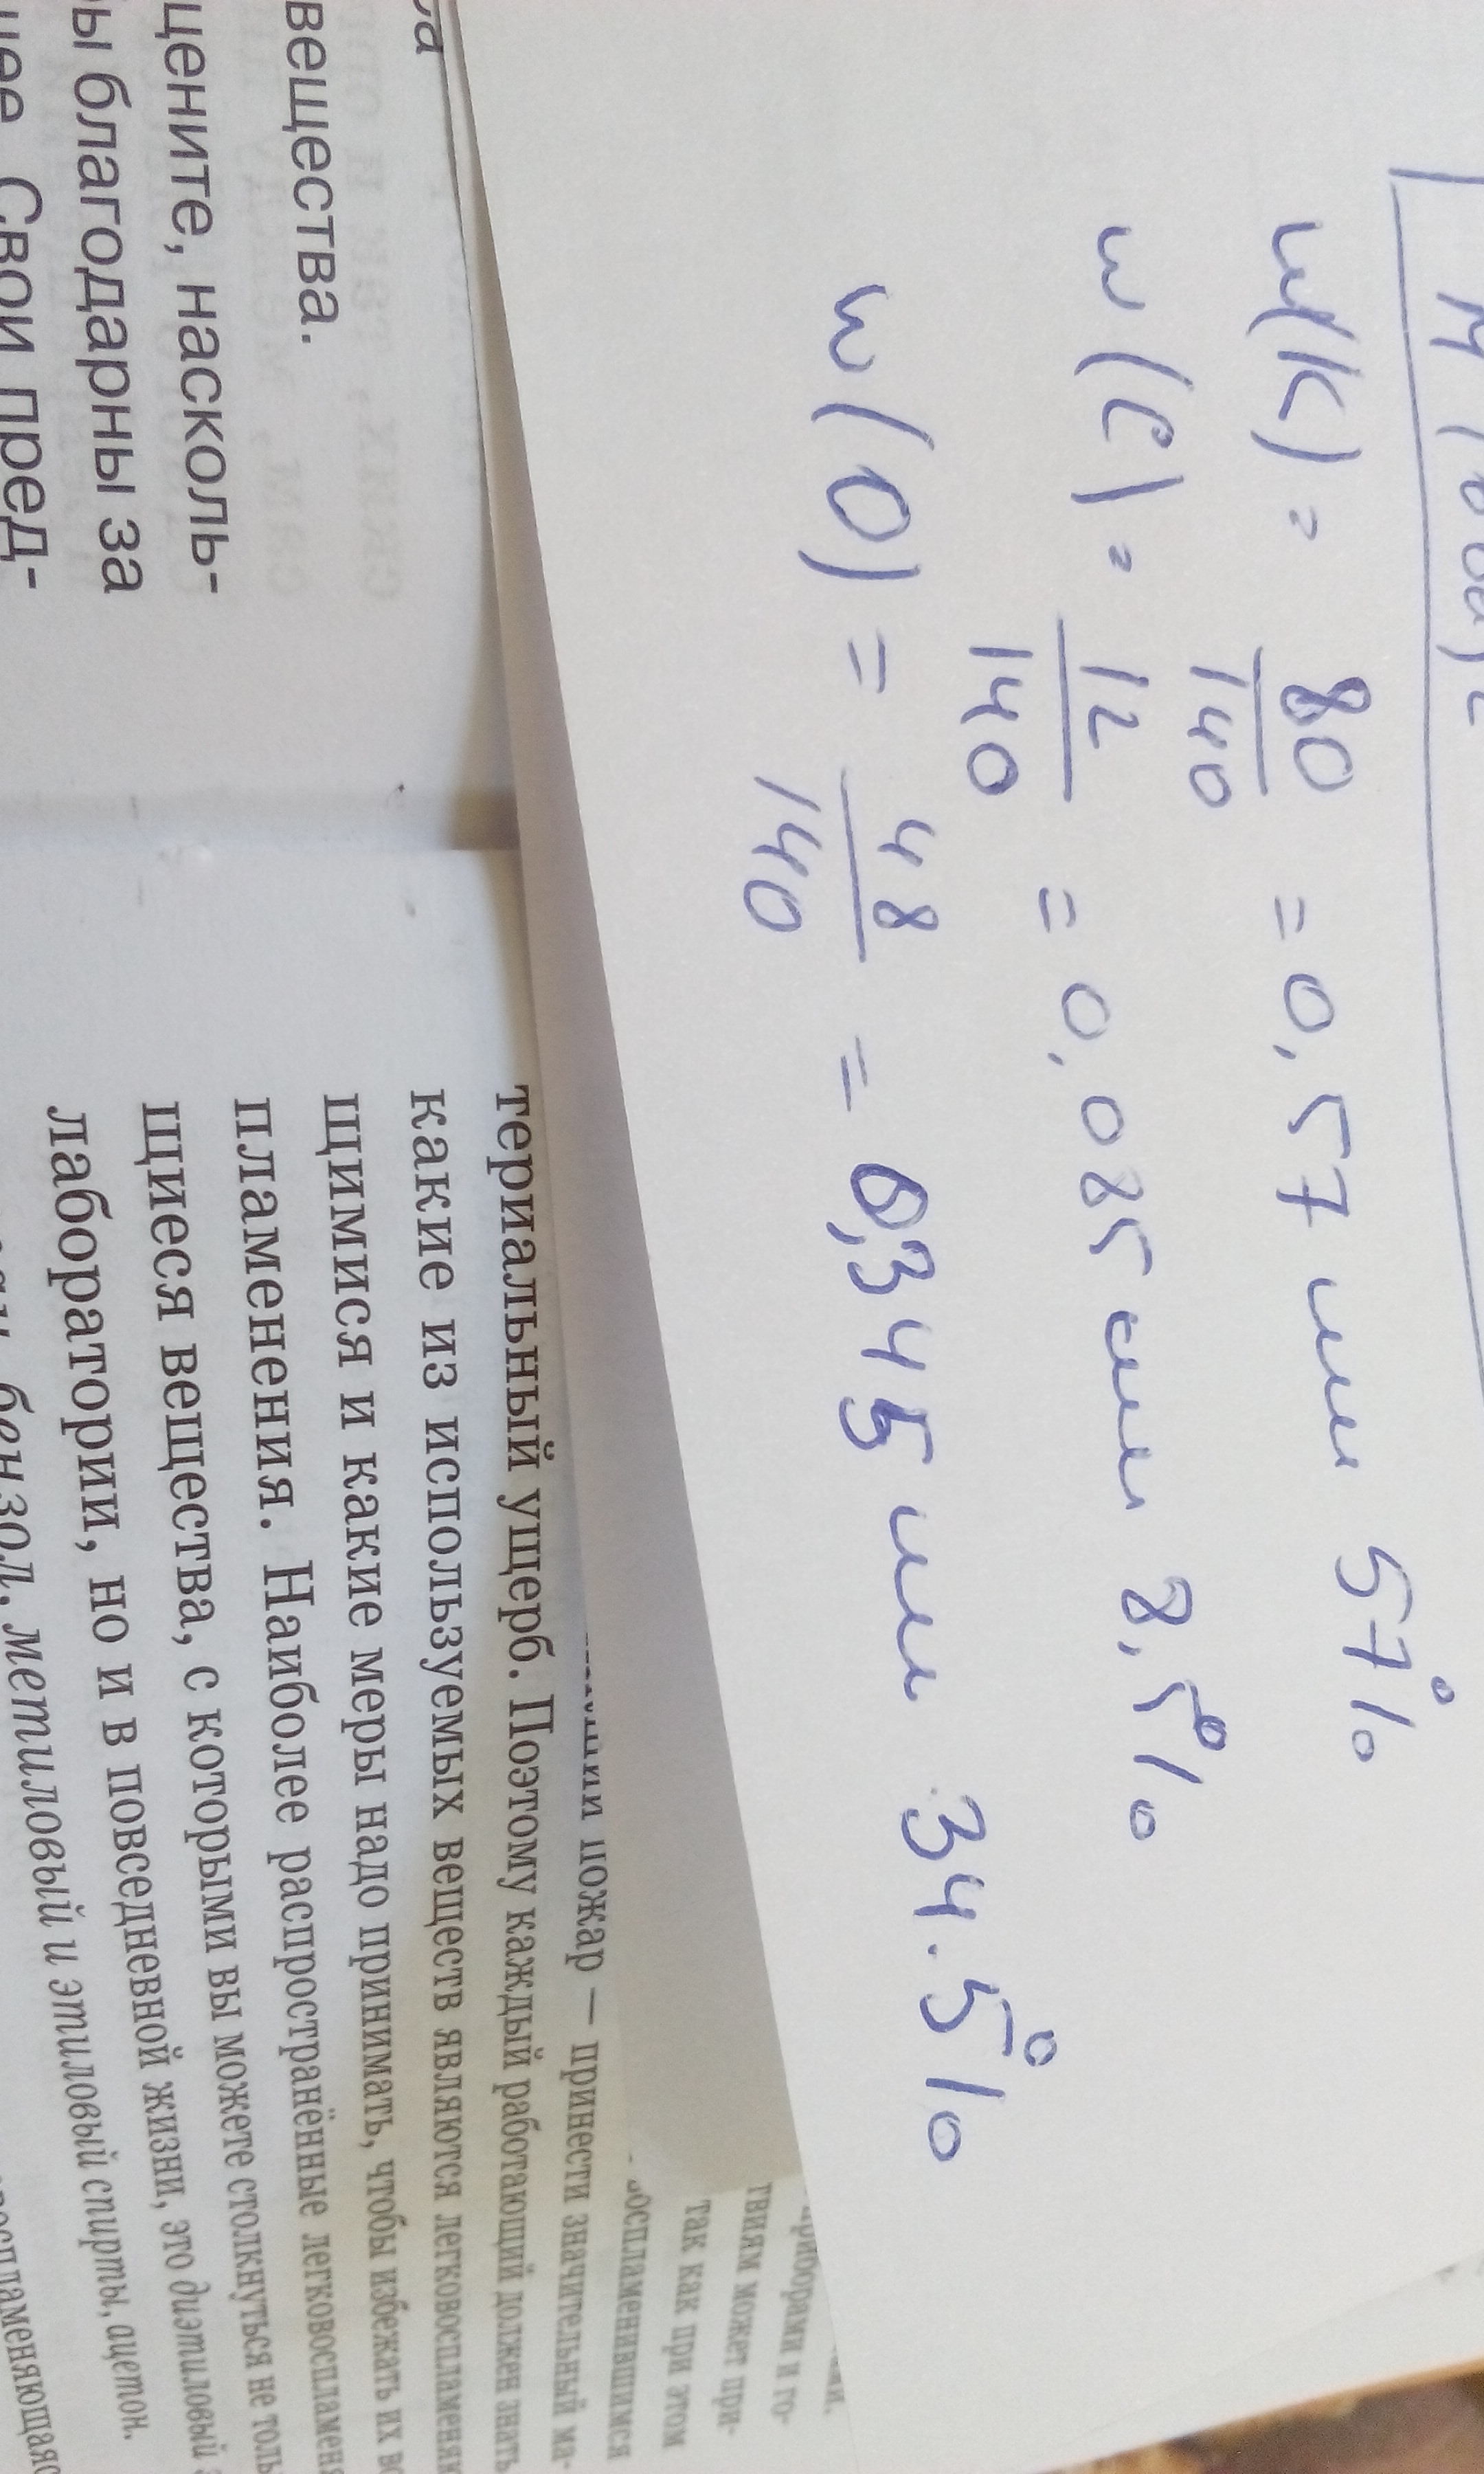 w(K) = 80/140 = 0,57 или 57%
w(C) = 12/140 = 0,085 или 8,5%
w(O) = 48/140 = 0,345 или 34.5%
вещества.
цените, насколь-
ы благодарны за
Свои пред-
пожар — принести значительный ма-
териальный ущерб. Поэтому каждый работающий должен знать
какие из используемых веществ являются легковоспламеняю
щимися и какие меры надо принимать, чтобы избежать их во
пламенения. Наиболее распространённые легковоспламеня
щиеся вещества, с которыми вы можете столкнуться не толь
лаборатории, но и в повседневной жизни, это диэтиловый э
бензол, метиловый и этиловый спирты, ацетон.
приборами и го-
твиям может при-
так как при этом
воспламенившимся